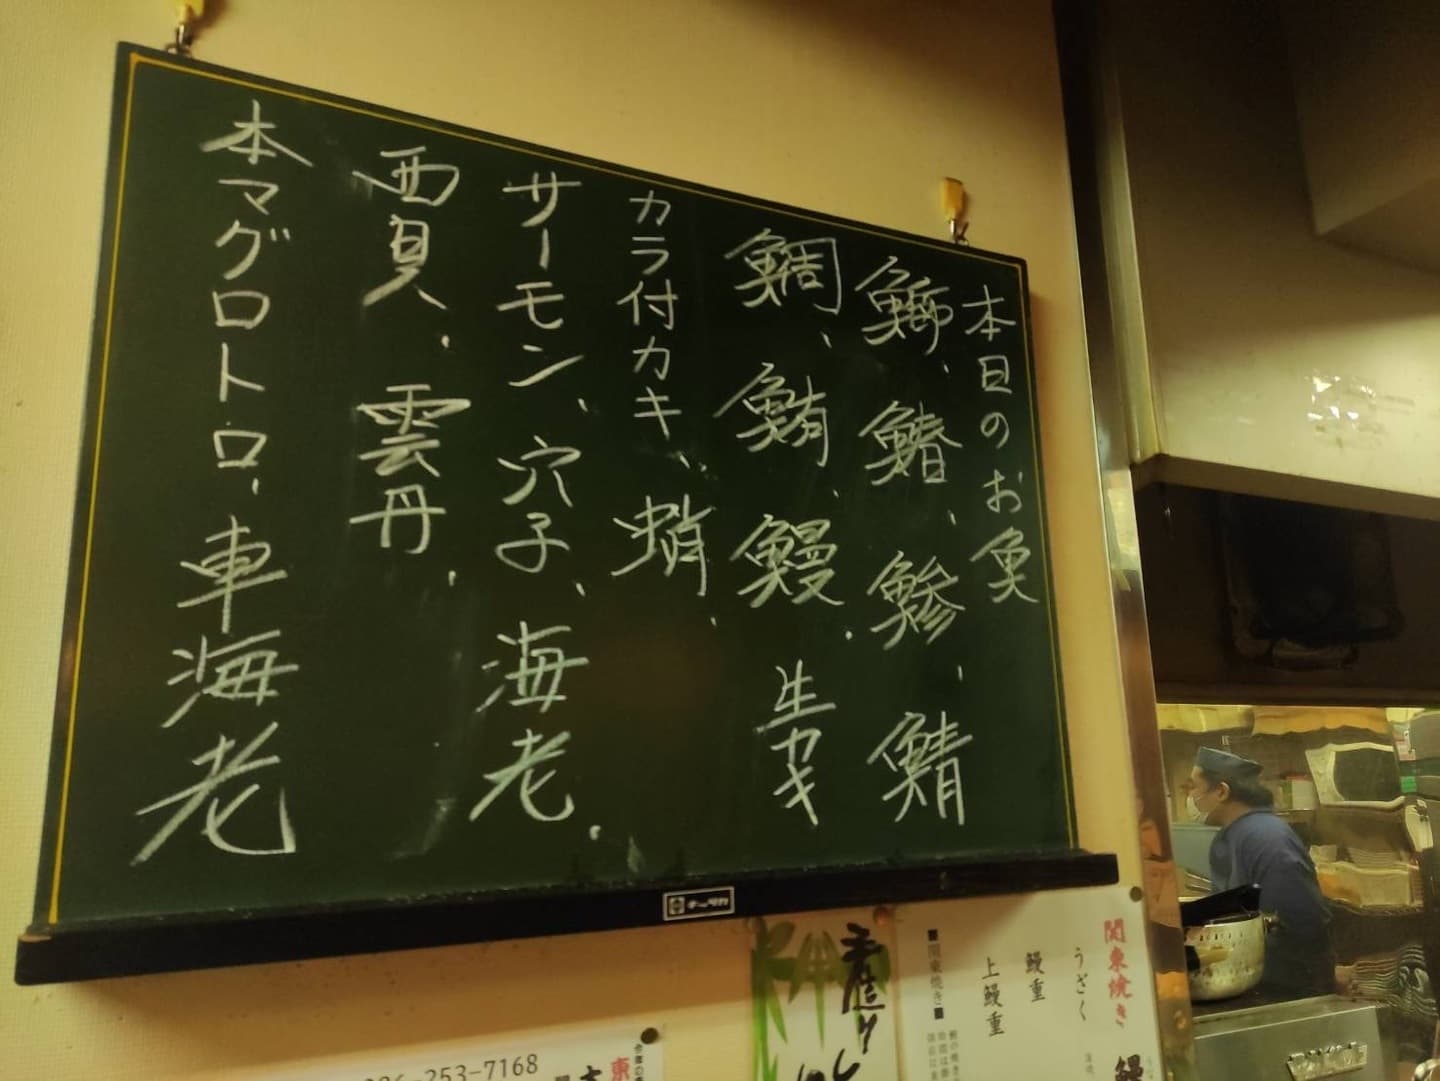 本日のお魚
鰤、鰆、鯵、鯖
鯛、鮪、鰻、生カキ
カラ付カキ、蛸、
サーモン、穴子、海老、
西貝、雲丹、
本マグロトロ、車海老
キッタカ
関東焼き
うざく
鰻重
上鰻重
■関東焼き■
手造り
253-7168